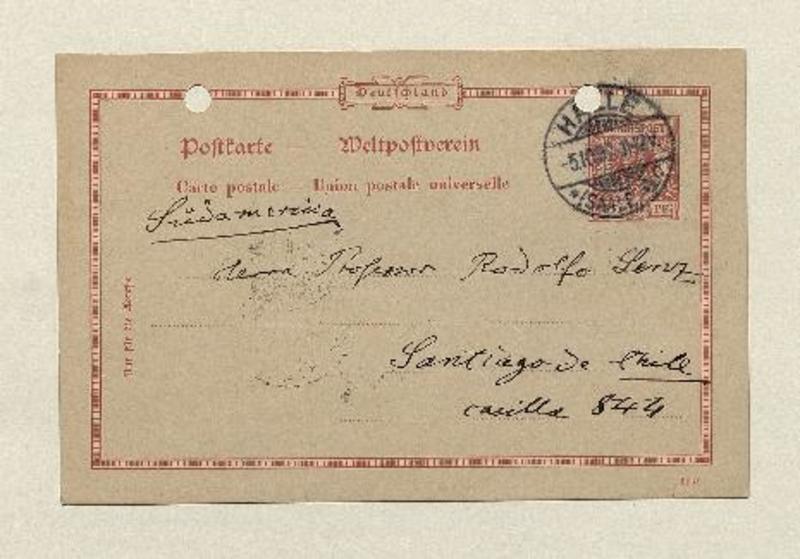 Deutschland
Postkarte — Weltpostverein
Carte postale — Union postale universelle
HALLE
*(SAALE)
Südamerica
Herrn Professor Rodolfo Lenz
Santiago de Chile
casilla 844
Nur für die Adresse